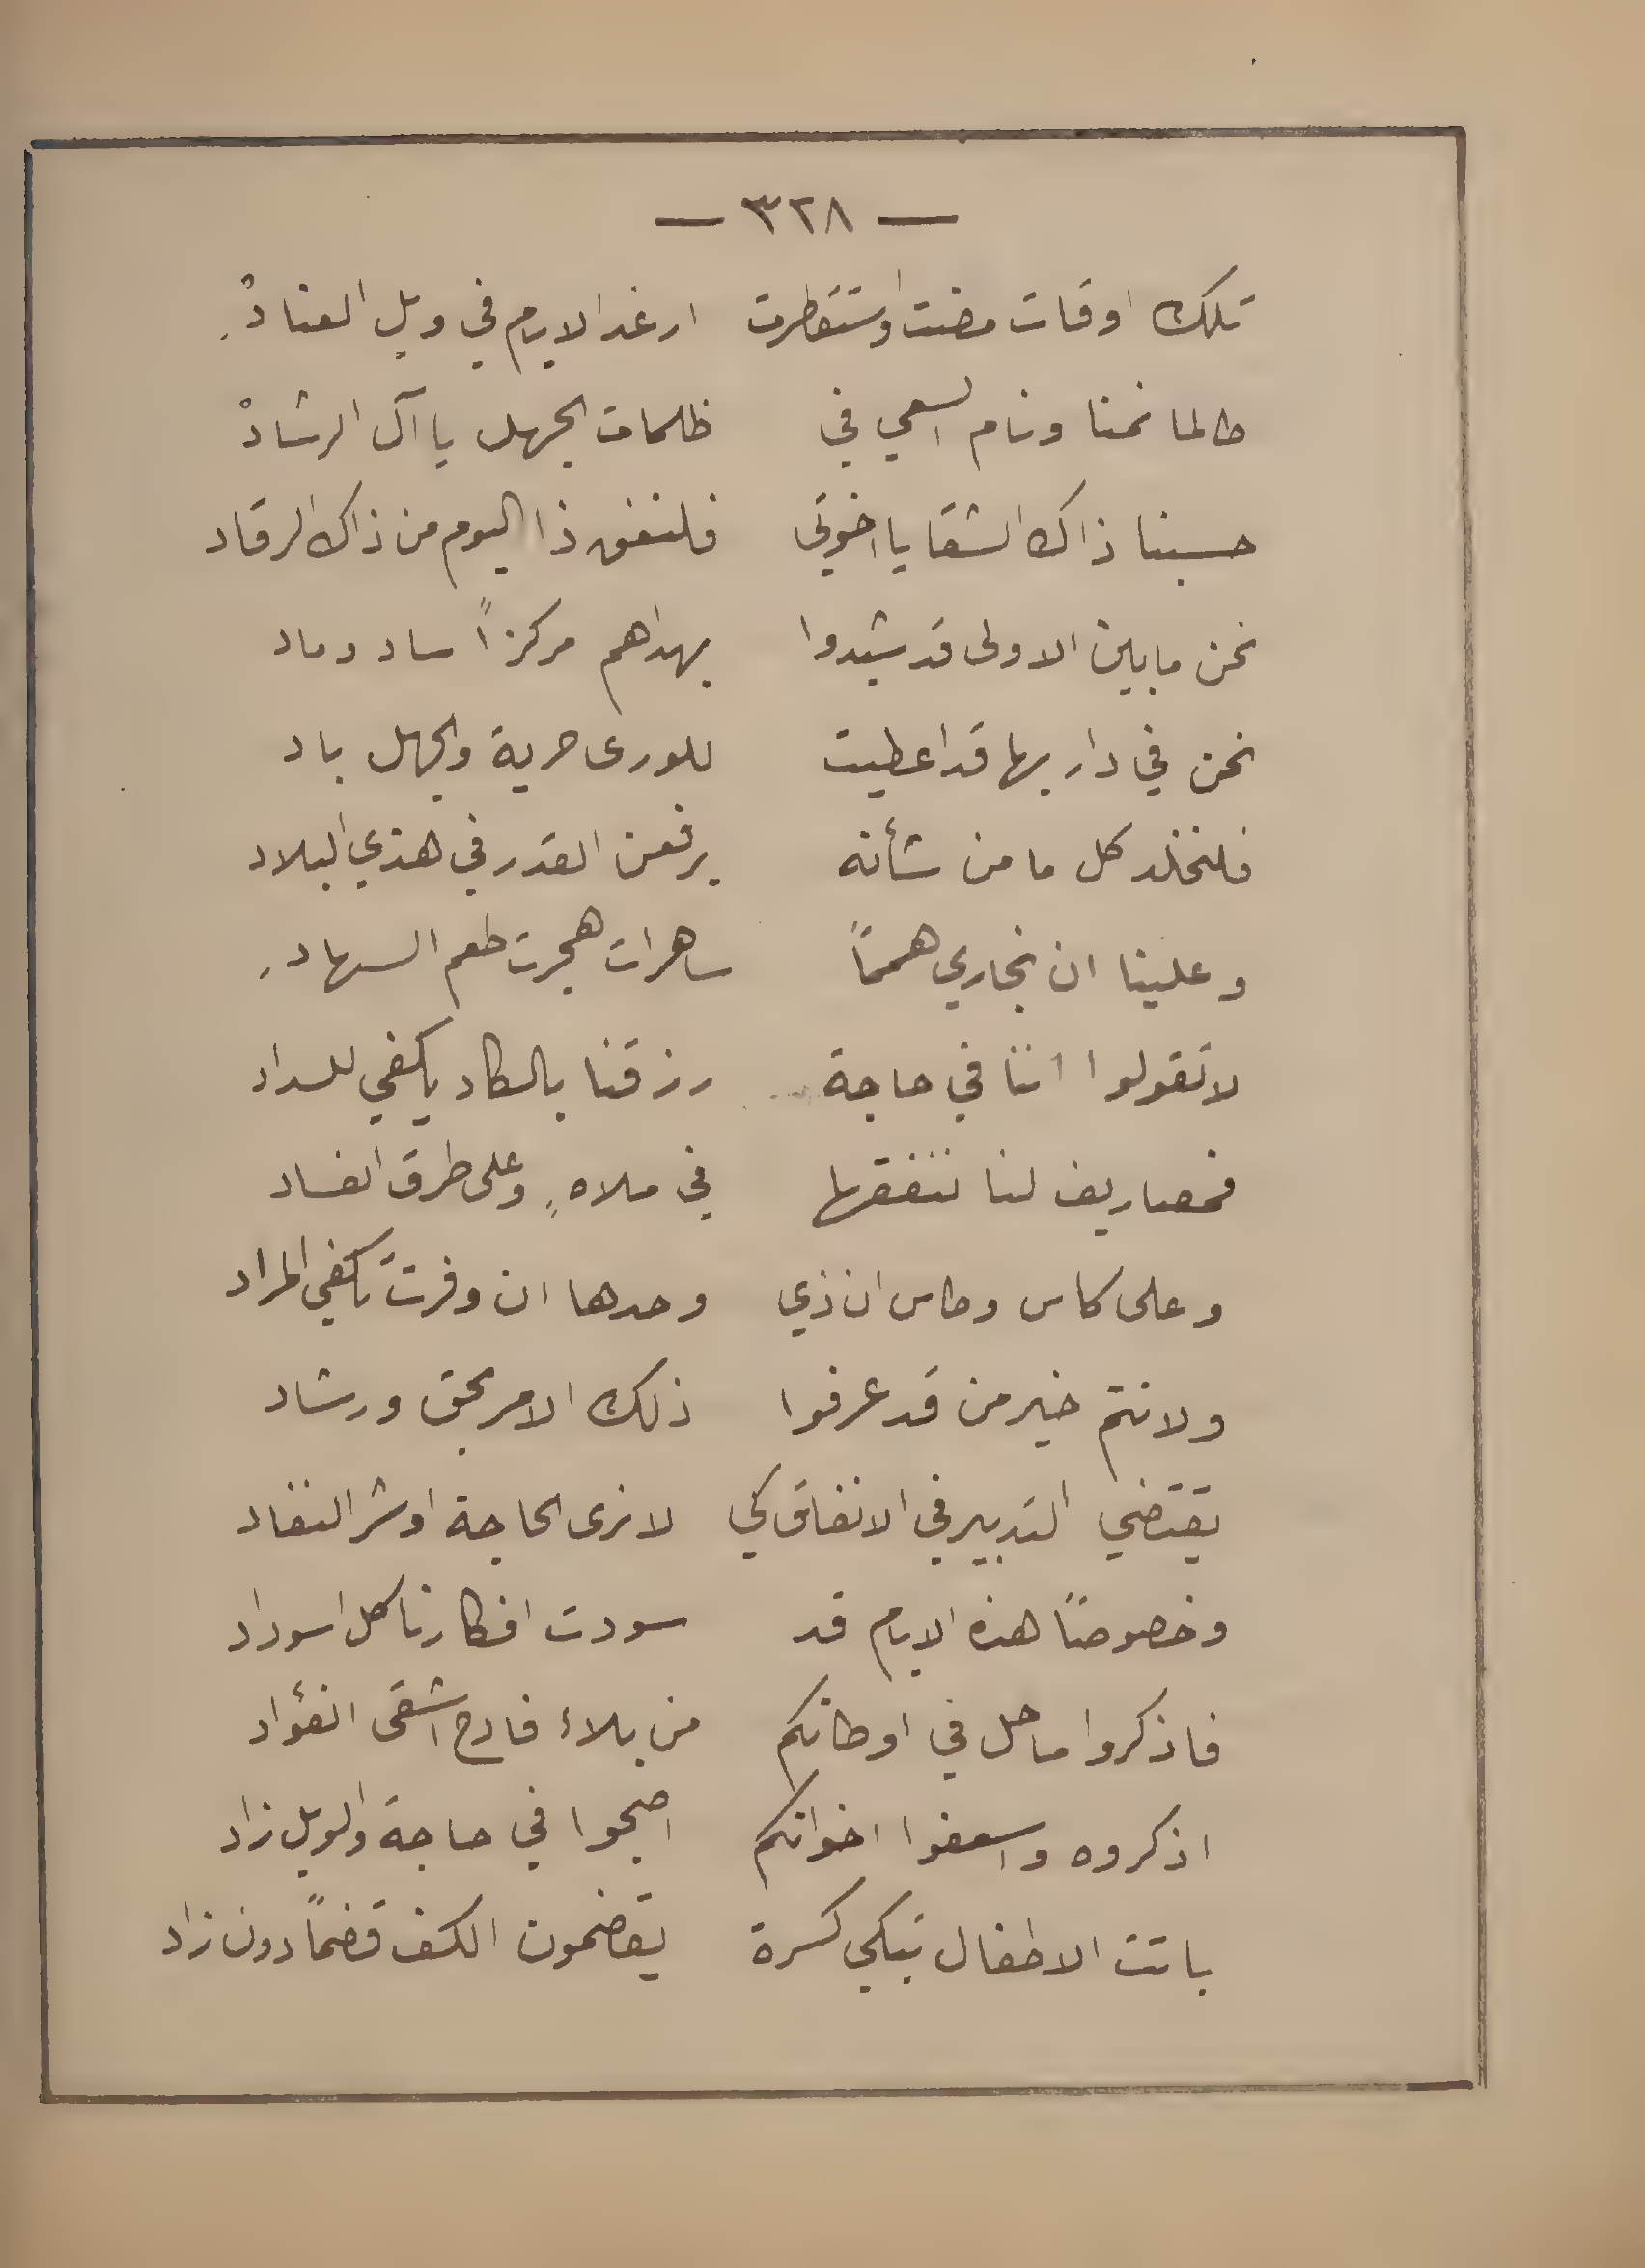 — ٣٢٨ —
تلك اوقات مضت واستقطرت ارغد الايام في ويل العنادْ
طالما نمنا ونام السعي في ظلمات الجهل يا آل الرشادْ
حسبنا ذاك الشقا يا اخوتي فلنفق ذا اليوم من ذاك الرقاد
نحن ما بين الاولى قد شيدوا بهداهم مركزاً ساد وماد
نحن في دار بها قد اعطيت للورى حرية والجهل باد
فلنخلد كل ما من شأنه يرفعن القدر في هذي البلاد
وعلينا ان نجاري همماً ساهرات هجرت طعم السهاد
لا تقولوا اننا في حاجة رزقنا بالكاد يكفي للسداد
فمصاريف لنا ننفقها في ملاهٍ وعلى طرق الفساد
وعلى كاس وطاس ان ذي وحدها ان وفرت تكفي المراد
ولانتم خير من قد عرفوا ذلك الامر بحق ورشاد
يقتضي التدبير في الانفاق كي لا نرى الحاجة او شر النفاد
وخصوصاً هذه الايام قد سودت افكارنا كل اسوداد
فاذكروا ما حل في اوطانكم من بلاء فادح اشقى الفؤاد
اذكروه واسعفوا اخوانكم اصبحوا في حاجة والويل زاد
باتت الاطفال تبكي كسرة يقضمون الكف قضماً دون زاد